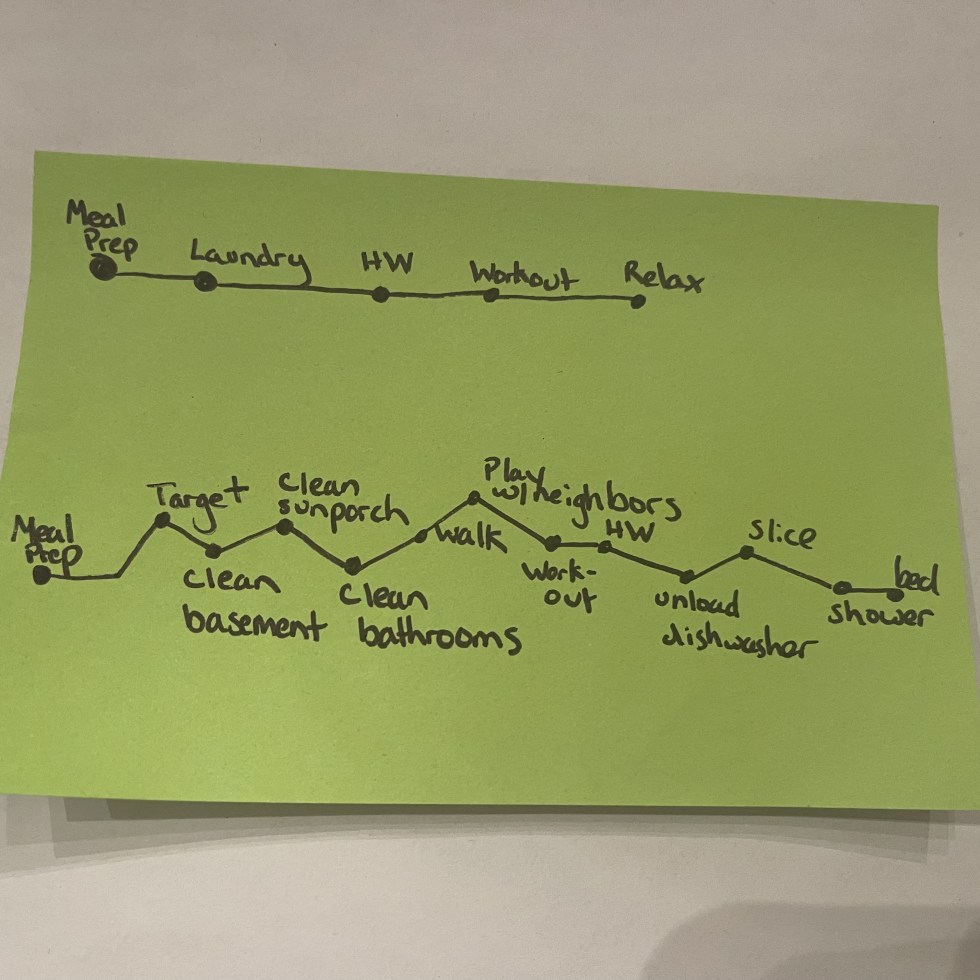 Meal
Prep
Laundry
HW
Workout
Relax
Meal
Prep
Target
clean
basement
clean
sunporch
clean
bathrooms
walk
Play
w/neighbors
work-
out
HW
unload
dishwasher
slice
shower
bed